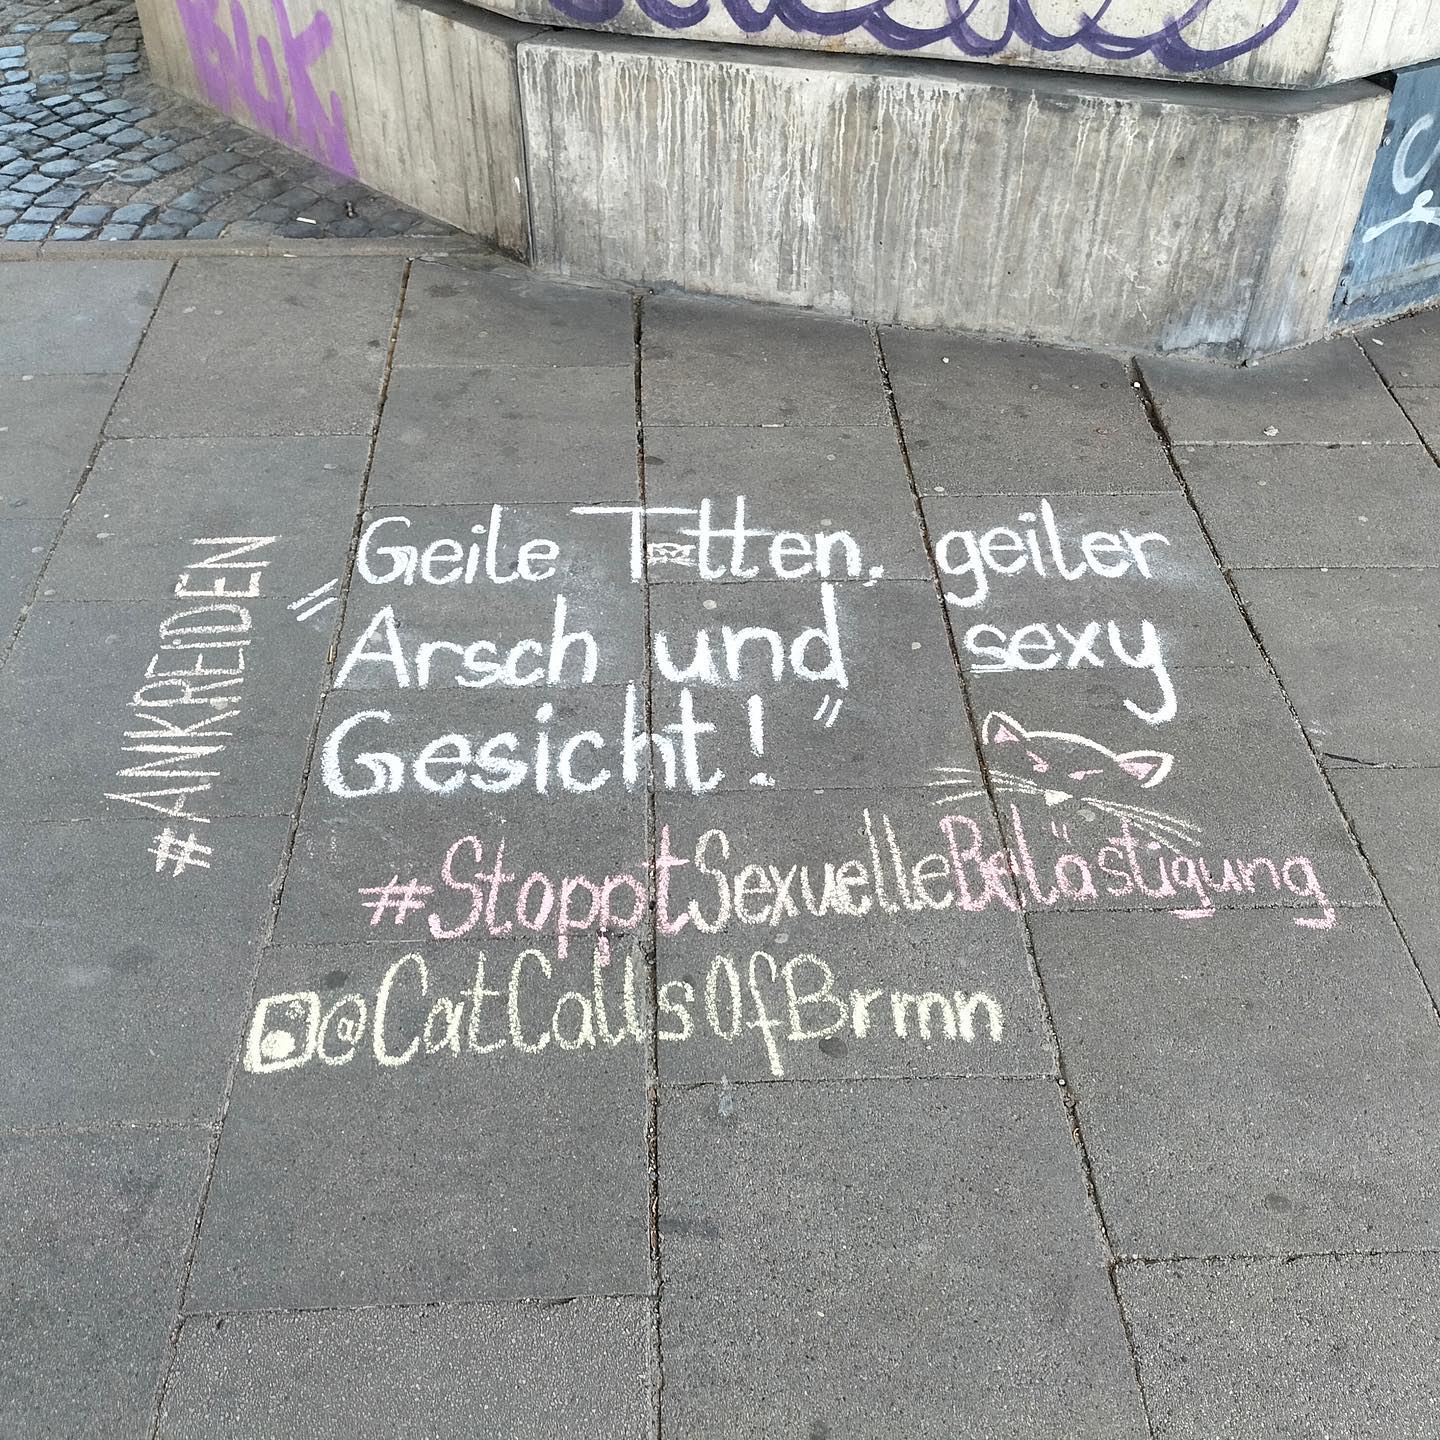 BLUK
#ANKREIDEN
"Geile T*tten, geiler
Arsch und sexy
Gesicht!"
#StopptSexuelleBelästigung
@CatCallsOfBrmn